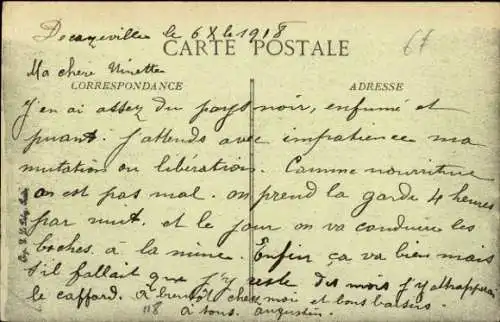 Decazeville le 6 Xbre 1918
CARTE POSTALE
67
Ma chere Ninette
CORRESPONDANCE
ADRESSE
J'en ai assez du pays noir, enfumé et
puant. J'attends avec impatience ma
mutation ou libération. Comme nourriture
on est pas mal. on prend la garde 4 heures
par nuit. et le jour on va conduire les
boches à la mine. Enfin ça va bien mais
s'il fallait que j'y reste des mois j'y attraperai
le caffard. à bientôt chez moi et bons baisers
à tous. augustin.
118